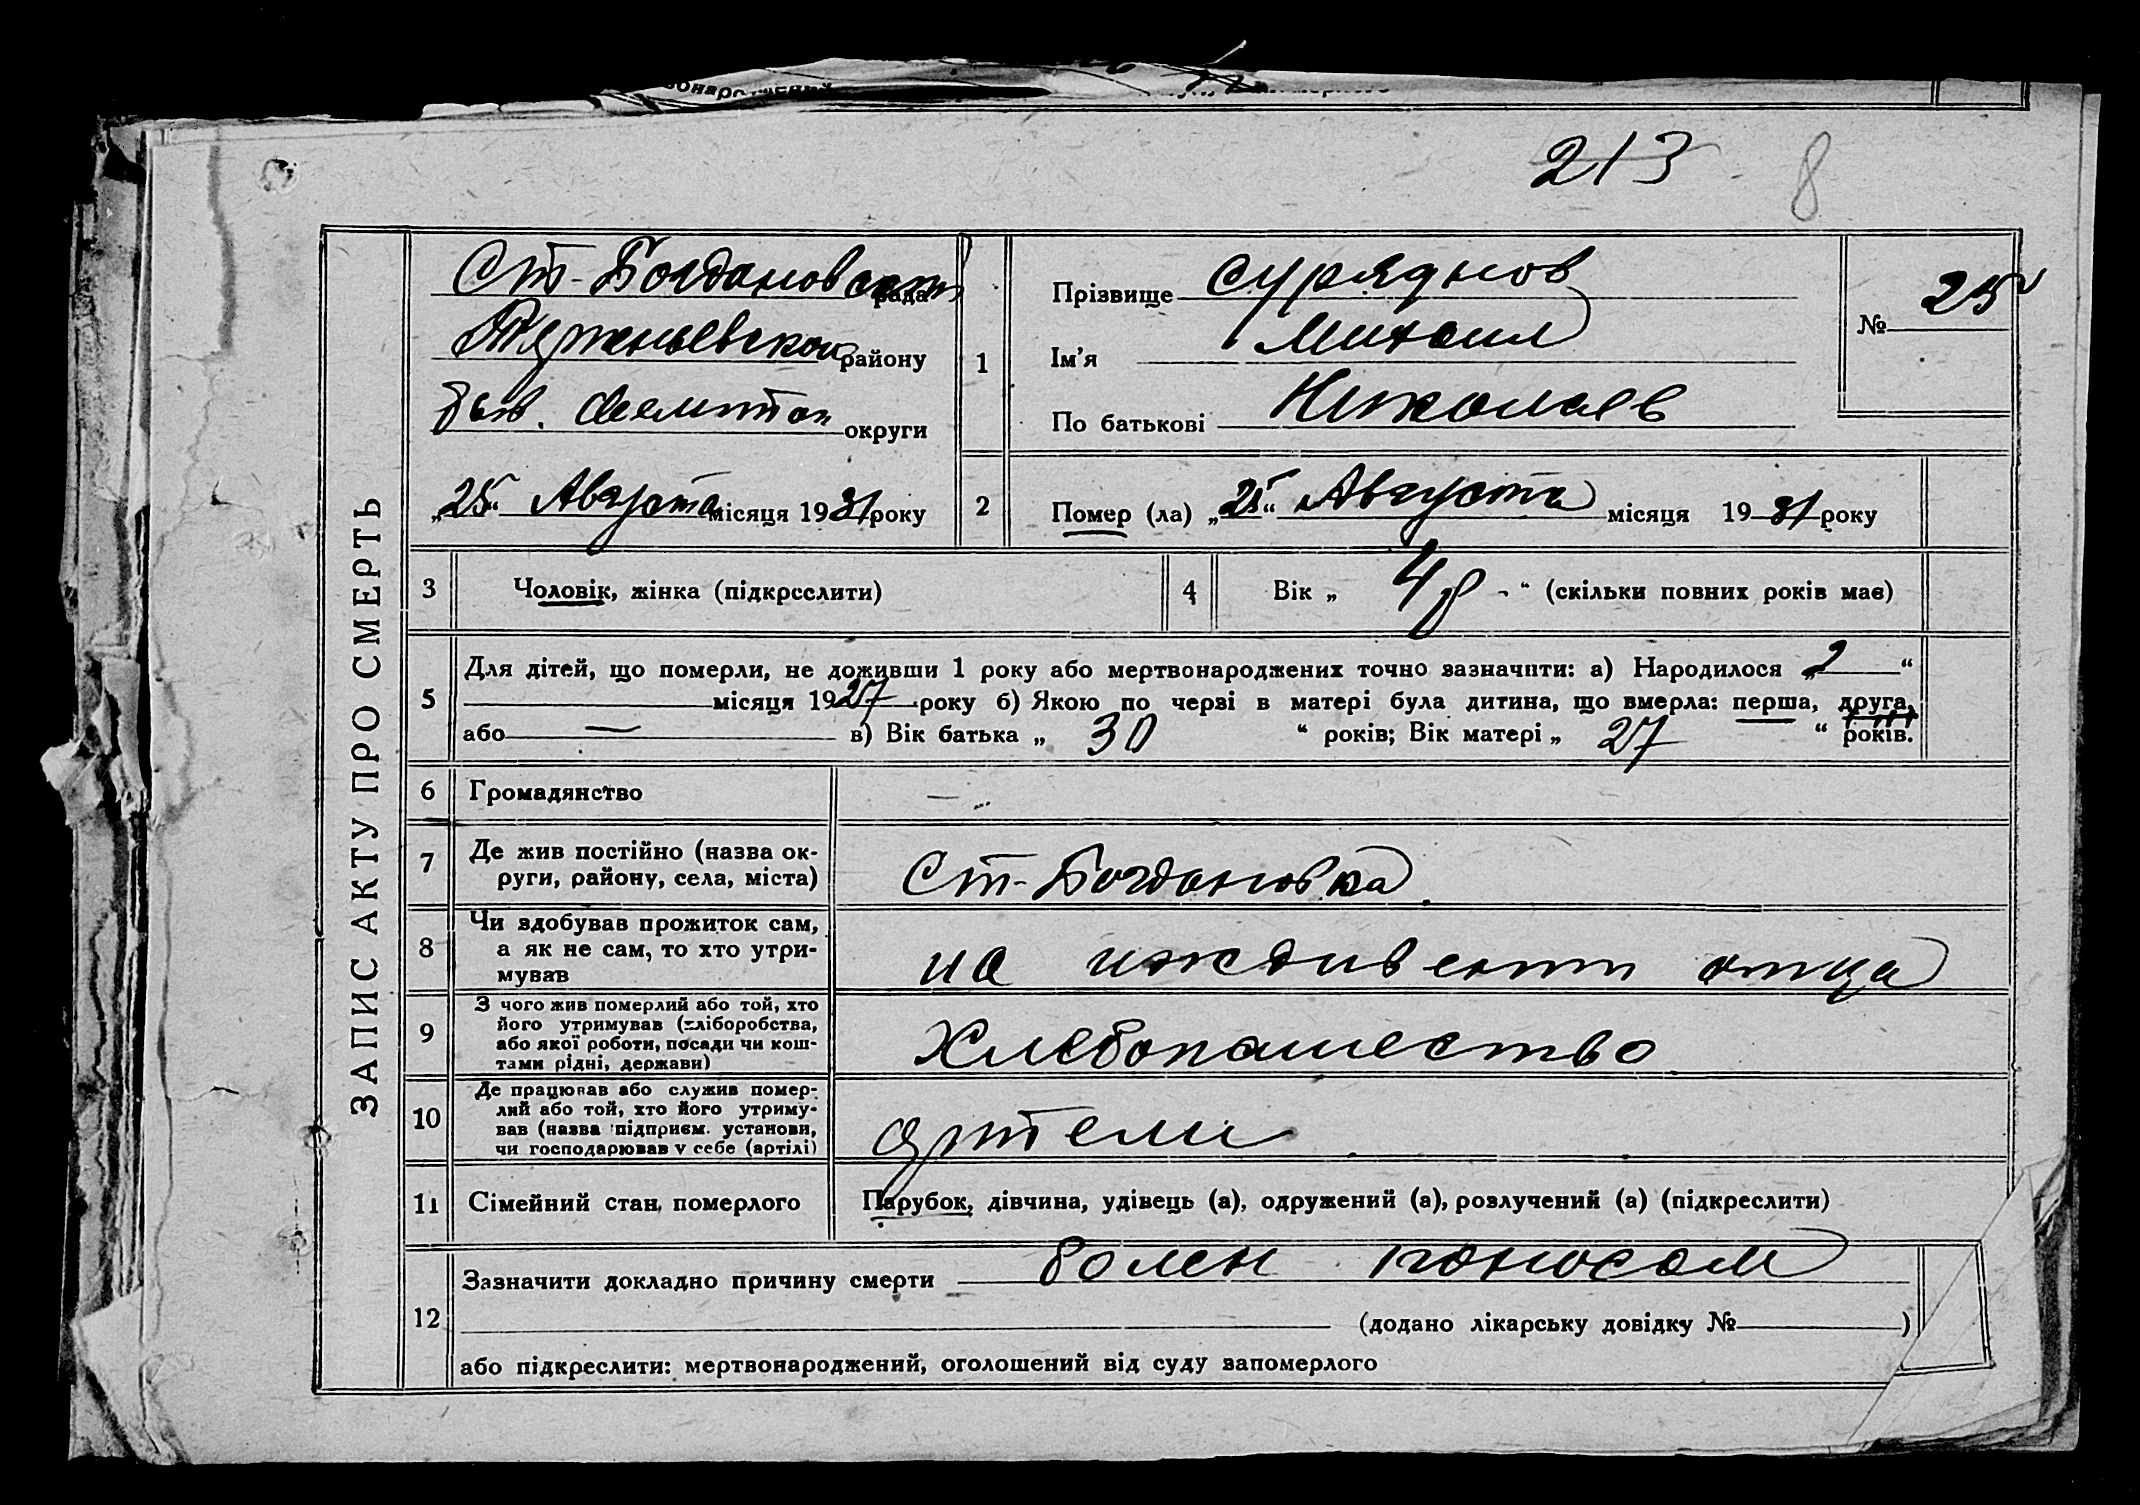 213 8
ЗАПИС АКТУ ПРО СМЕРТЬ
Ст-Богдановская рада
району
быв. Мелитоп округи
„25“ Августа місяця 1931 року
1
Прізвище Суряднов
Ім’я Михаил
По батькові Николаев
№ 25
2 Помер (ла) „25“ Августа місяця 1931 року
3 Чоловік, жінка (підкреслити)
4 Вік „ 4 “ (скільки повних років має)
5 Для дітей, що померли, не доживши 1 року або мертвонароджених точно зазначити: а) Народилося „2“
місяця 1927 року б) Якою по черзі в матері була дитина, що вмерла: перша, друга,
або — в) Вік батька „ 30 “ років; Вік матері „ 27 “ років.
6 Громадянство —
7 Де жив постійно (назва ок-
руги, району, села, міста) Ст-Богдановка
8 Чи здобував прожиток сам,
а як не сам, то хто утри-
мував на иждивении отца
9 З чого жив померлий або той, хто
його утримував (хліборобства,
або якої роботи, посади чи кош-
тами рідні, держави) Хлебопашество
10 Де працював або служив помер-
лий або той, хто його утриму-
вав (назва підприєм. установи,
чи господарював у себе (артілі) артели
11 Сімейний стан померлого Парубок, дівчина, удівець (а), одружений (а), розлучений (а) (підкреслити)
12 Зазначити докладно причину смерти болен поносом
(додано лікарську довідку № )
або підкреслити: мертвонароджений, оголошений від суду запомерлого